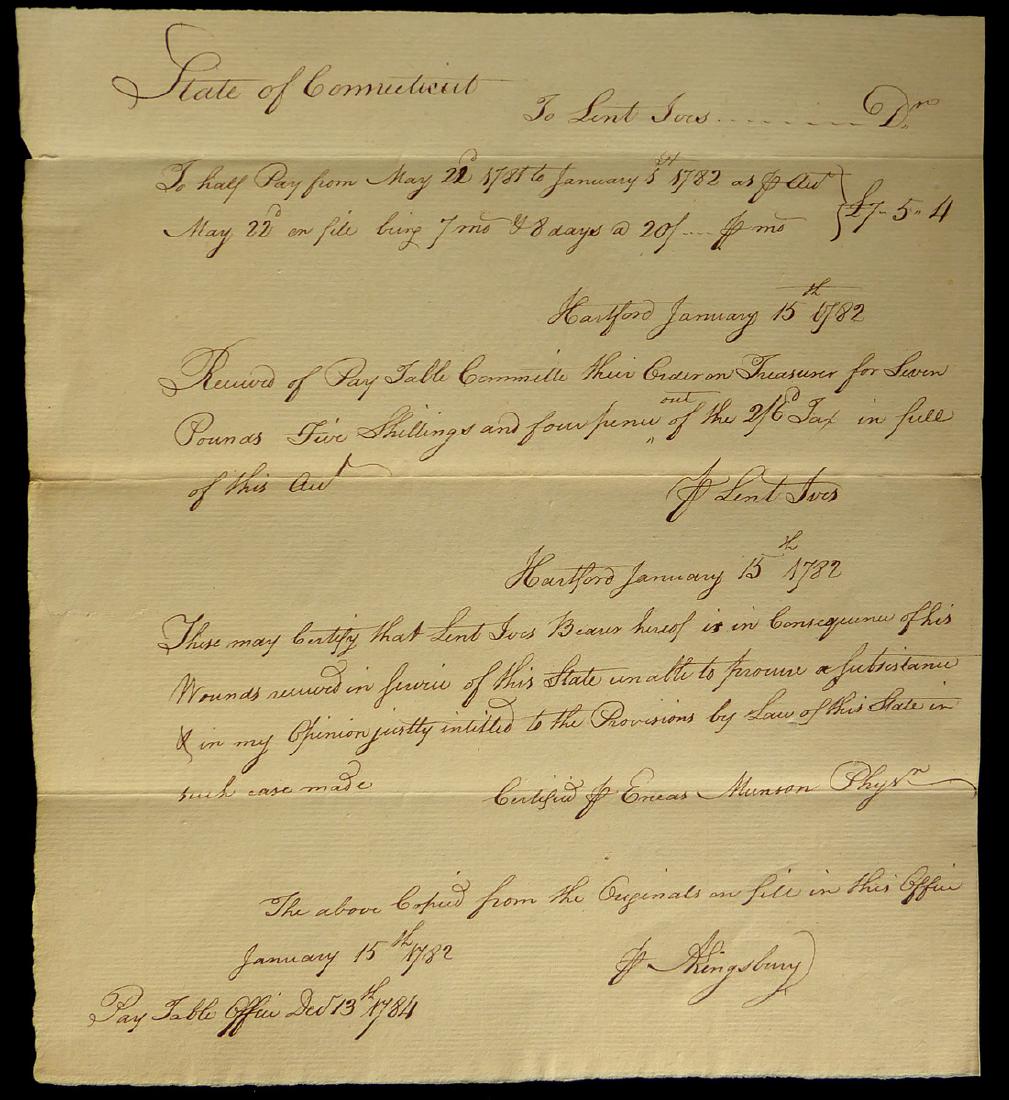 State of Connecticut
To Lent Ives ........... Dr
To half Pay from May 22d 1781 to January 1st 1782 as ⅌ Act
May 22d on file being 7 mo & 8 days a 20/ .... ⅌ mo } £7 - 5 - 4
Hartford January 15th 1782
Received of Pay Table Committe their Order on Treasurer for Seven
Pounds Five Shillings and four pence out of the 2/6d Tax in full
of this Act
⅌ Lent Ives
Hartford January 15th 1782
These may Certify that Lent Ives Bearer hereof is in Consequence of his
Wounds received in Service of this State unable to procure a subsistance
& in my Opinion justly intitled to the Provisions by Law of this State in
such case made
Certified ⅌ Eneas Munson Physn
The above Copied from the Originals on file in this Office
January 15th 1782
⅌ AKingsbury
Pay Table Office Decr 13th 1784